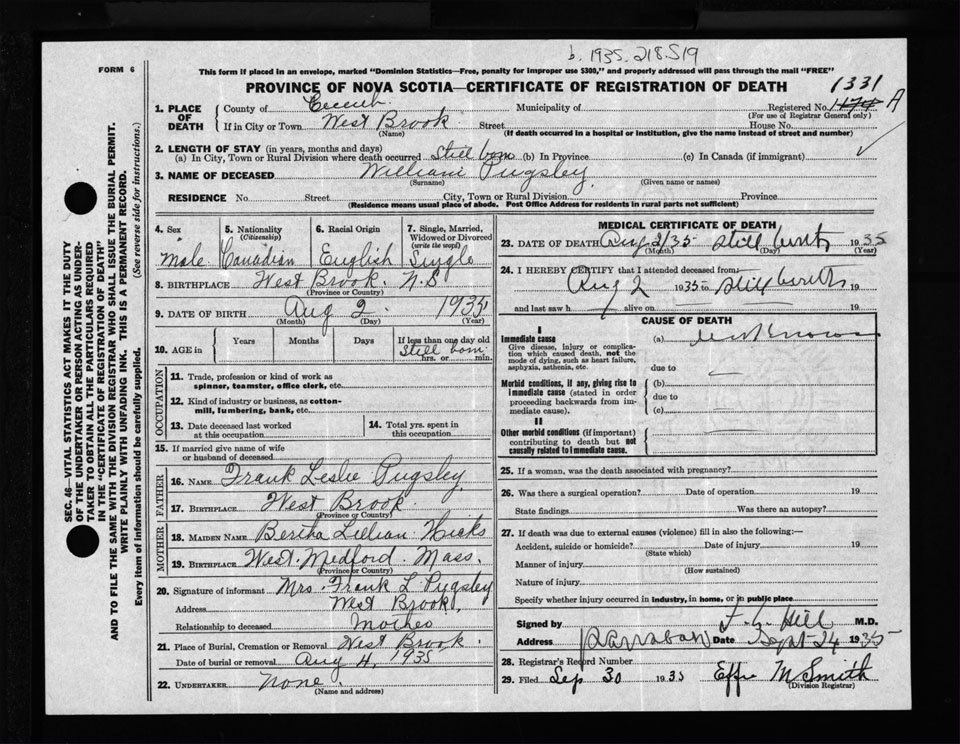 b. 1935. 218519
FORM 6
This form if placed in an envelope, marked "Dominion Statistics—Free, penalty for improper use $300," and properly addressed will pass through the mail "FREE"
PROVINCE OF NOVA SCOTIA—CERTIFICATE OF REGISTRATION OF DEATH
1331 A
SEC. 46—VITAL STATISTICS ACT MAKES IT THE DUTY
OF THE UNDERTAKER OR PERSON ACTING AS UNDER-
TAKER TO OBTAIN ALL THE PARTICULARS REQUIRED
IN THE "CERTIFICATE OF REGISTRATION OF DEATH"
AND TO FILE THE SAME WITH THE DIVISION REGISTRAR WHO SHALL ISSUE THE BURIAL PERMIT.
WRITE PLAINLY WITH UNFADING INK. THIS IS A PERMANENT RECORD.
Every item of information should be carefully supplied. (See reverse side for instructions.)
1. PLACE OF DEATH County of Municipality of Registered No.
(For use of Registrar General only)
If in City or Town West Brook Street House No.
(Name) (If death occurred in a hospital or institution, give the name instead of street and number)
2. LENGTH OF STAY (in years, months and days)
(a) In City, Town or Rural Division where death occurred Still born (b) In Province (c) In Canada (if immigrant)
3. NAME OF DECEASED William Pugsley
(Surname) (Given name or names)
RESIDENCE No. Street City, Town or Rural Division Province
(Residence means usual place of abode. Post Office Address for residents in rural parts not sufficient)
4. Sex 5. Nationality (Citizenship) 6. Racial Origin 7. Single, Married, Widowed or Divorced (write the word)
Male Canadian English Single
8. BIRTHPLACE West Brook. N.S
(Province or Country)
9. DATE OF BIRTH Aug 2 1935
(Month) (Day) (Year)
10. AGE in Years Months Days If less than one day old
Still born
hrs. or min.
OCCUPATION
11. Trade, profession or kind of work as
spinner, teamster, office clerk, etc.
12. Kind of industry or business, as cotton-
mill, lumbering, bank, etc.
13. Date deceased last worked
at this occupation
14. Total yrs. spent in
this occupation
15. If married give name of wife
or husband of deceased
FATHER
16. NAME Frank Leslie Pugsley
17. BIRTHPLACE West Brook
(Province or Country)
MOTHER
18. MAIDEN NAME Bertha Lillian Hicks
19. BIRTHPLACE West. Medford Mass.
(Province or Country)
20. Signature of informant Mrs. Frank L Pugsley
Address West Brook,
Relationship to deceased Mother
21. Place of Burial, Cremation or Removal West Brook.
Date of burial or removal Aug 4, 1935
22. UNDERTAKER None
(Name and address)
MEDICAL CERTIFICATE OF DEATH
23. DATE OF DEATH Aug 2/35 Still birth 1935
(Month) (Day) (Year)
24. I HEREBY CERTIFY that I attended deceased from
Aug 2 1935 to still birth 19
and last saw h alive on 19
CAUSE OF DEATH
I
Immediate cause
Give disease, injury or complica-
tion which caused death, not the
mode of dying, such as heart failure,
asphyxia, asthenia, etc.
(a)
due to
Morbid conditions, if any, giving rise to
immediate cause (stated in order
proceeding backwards from im-
mediate cause).
(b)
due to
(c)
II
Other morbid conditions (if important)
contributing to death but not
causally related to immediate cause.
25. If a woman, was the death associated with pregnancy?
26. Was there a surgical operation? Date of operation 19
State findings Was there an autopsy?
27. If death was due to external causes (violence) fill in also the following:—
Accident, suicide or homicide? Date of injury 19
(State which)
Manner of injury
(How sustained)
Nature of injury
Specify whether injury occurred in industry, in home, or in public place
Signed by Hill M.D.
Address Date Sept 24 1935
28. Registrar's Record Number
29. Filed Sep 30 1935 Effie M Smith
(Division Registrar)